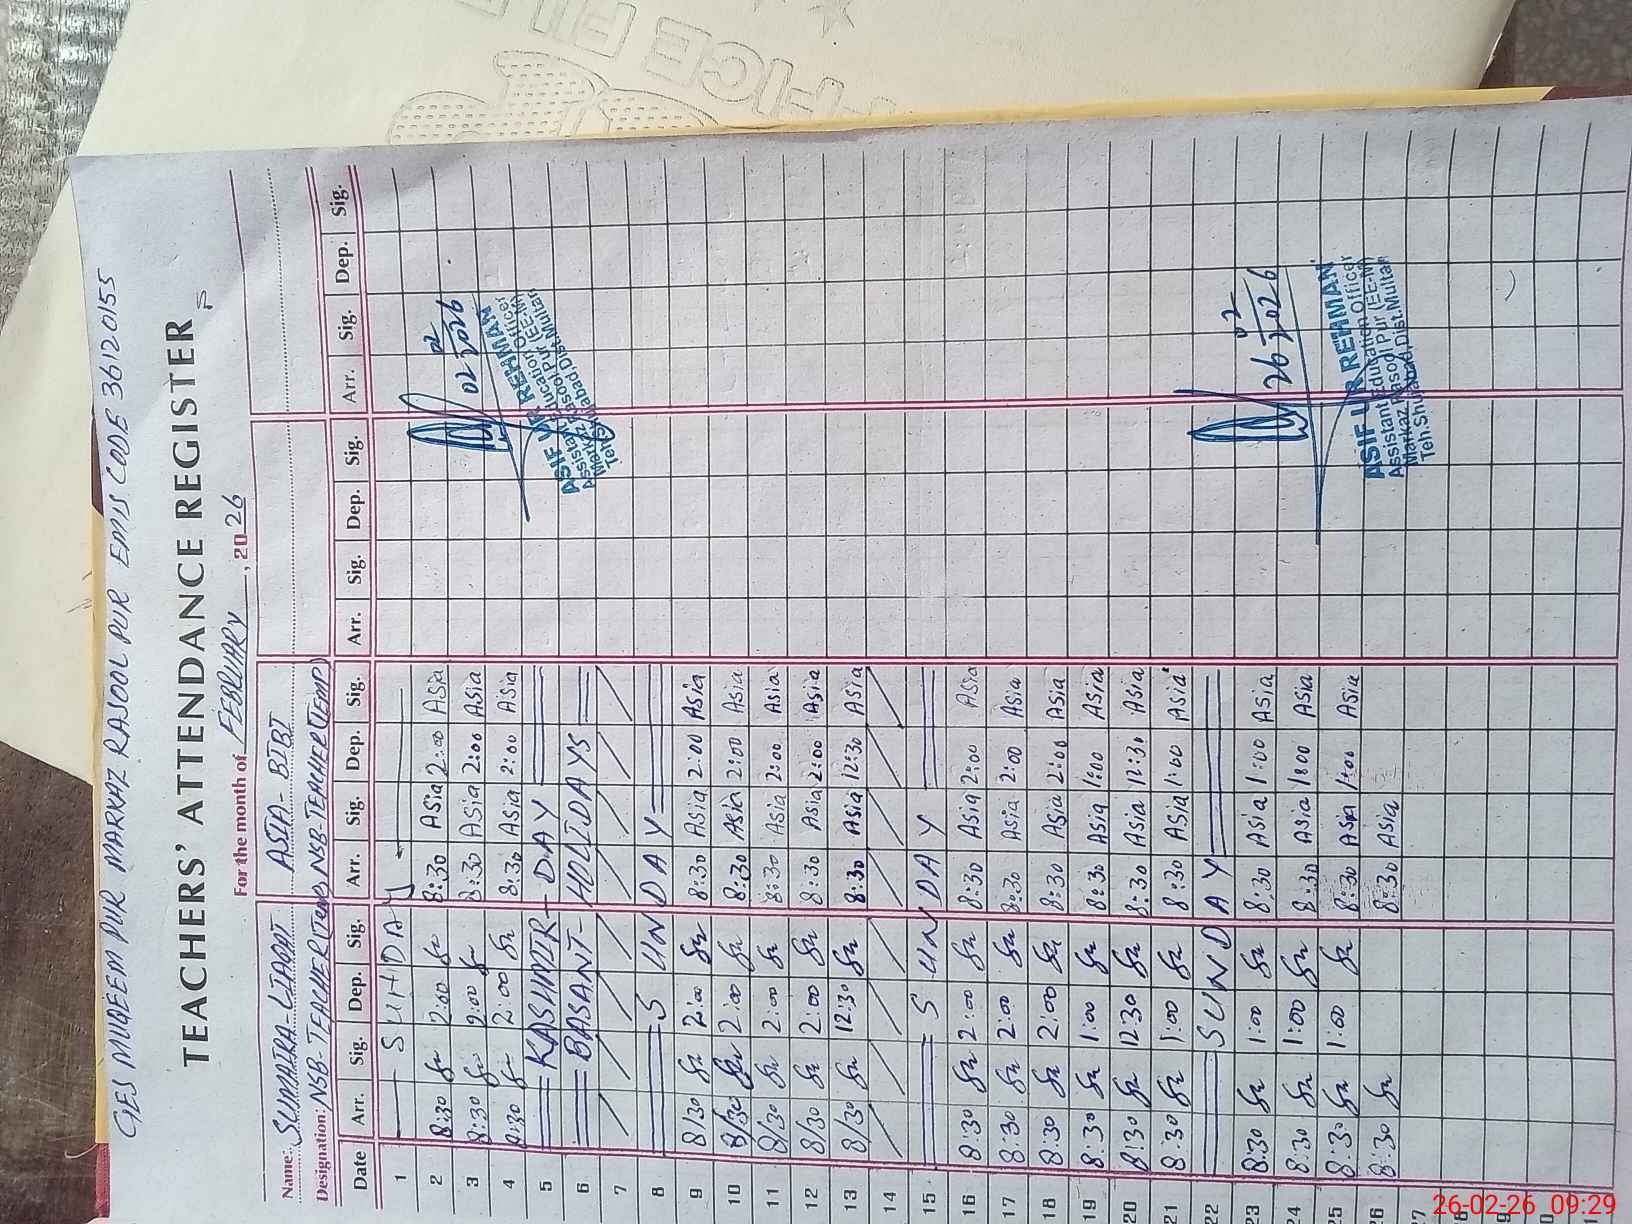 GES MUQEEM PUR MARKAZ RASOOL PUR EMIS CODE 36120155
TEACHERS' ATTENDANCE REGISTER
For the month of FEBRUARY, 2026
Name: SUMAIRA-LIAQAT ASIA-BIBI
Designation: NSB TEACHER NSB-TEACHER(TEMP)
Date Arr. Sig. Dep. Sig. Arr. Sig. Dep. Sig. Arr. Sig. Dep. Sig. Arr. Sig. Dep. Sig.
1 SUNDAY
2 8:30 2:00 8:30 Asia 2:00 Asia
3 8:30 2:00 8:30 Asia 2:00 Asia
4 8:30 2:00 8:30 Asia 2:00 Asia
5 KASHMIR-DAY
6 BASANT-HOLIDAYS
7
8 SUNDAY
9 8/30 2:00 8:30 Asia 2:00 Asia
10 8/30 2:00 8:30 Asia 2:00 Asia
11 8/30 2:00 8:30 Asia 2:00 Asia
12 8/30 2:00 8:30 Asia 2:00 Asia
13 8/30 12:30 8:30 Asia 12:30 Asia
14
15 SUNDAY
16 8:30 2:00 8:30 Asia 2:00 Asia
17 8:30 2:00 8:30 Asia 2:00 Asia
18 8:30 2:00 8:30 Asia 2:00 Asia
19 8:30 1:00 8:30 Asia 1:00 Asia
20 8:30 12:30 8:30 Asia 12:30 Asia
21 8:30 1:00 8:30 Asia 1:00 Asia
22 SUNDAY
23 8:30 1:00 8:30 Asia 1:00 Asia
24 8:30 1:00 8:30 Asia 1:00 Asia
25 8:30 1:00 8:30 Asia 1:00 Asia
26 8:30 8:30 Asia
27
02 02 2026
ASIF UR REHMAN
Assistant Education Officer
Markaz Rasool Pur (EE-M)
Teh.Shujabad,Dist.Multan
26 02 2026
ASIF UR REHMAN
Assistant Education Officer
Markaz Rasool Pur (EE-M)
Teh.Shujabad,Dist.Multan
OFFICE FILE
26-02-26 09:29